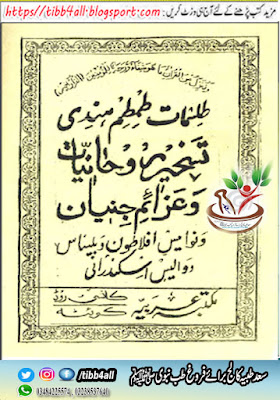 مزید کتب پڑھنے کے لئے آج ہی وزٹ کریں : https://tibb4all.blogspot.com
طلسمات طمطم ہندی
تسخیر روحانیات
وعزائم جنیان
ونوامیس افلاطون وبلیناس
دوالیس اسکندرانی
مکتبہ عربیہ
کانسی روڈ
کوئٹہ
/tibb4all
03484225574,
سعد طبیہ کالج برائے فروغ طب نبوی صلی اللہ علیہ وسلم